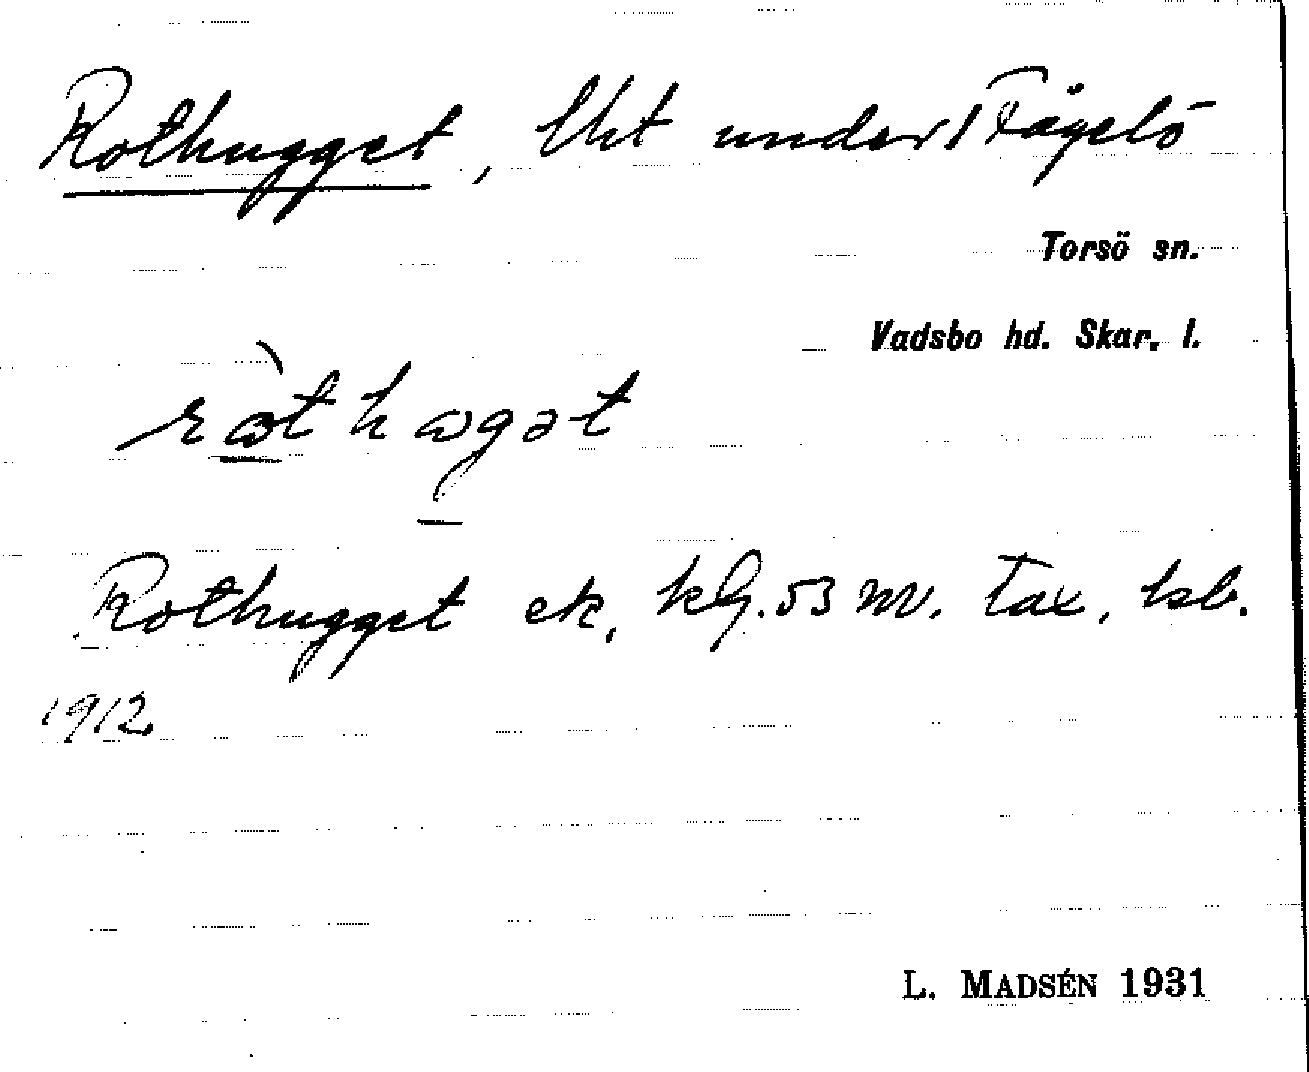 Rothugget, lht under 1 Fågelö
Torsö sn.
Vadsbo hd. Skar. l.
Rothugget ek, kG. 53 nv. Tax, ksb.
1912
L. MADSÉN 1931